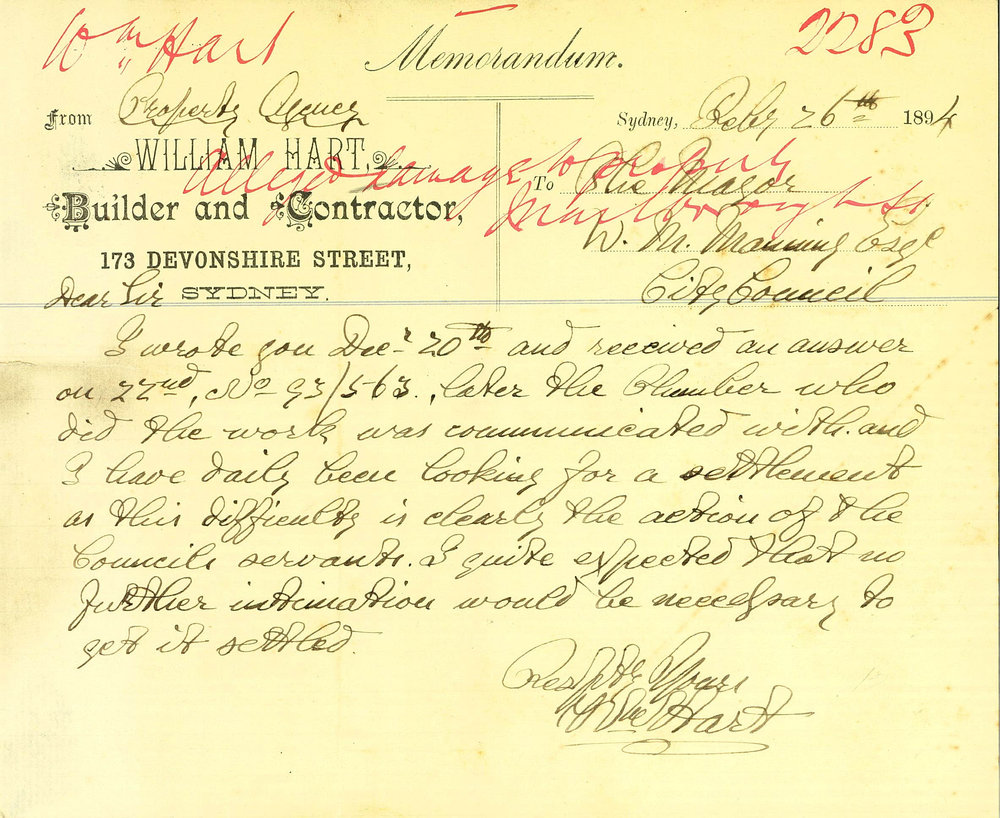 Wm Hart
2283
Memorandum.
From Property Agency
Sydney, Feby 26th 1894
WILLIAM HART,
Alleged damage to property
Marlborough St.
To The Mayor
Builder and Contractor,
W. M. Manning Esqr
173 DEVONSHIRE STREET,
SYDNEY.
City Council
Dear Sir
I wrote you Decr 20th and received an answer
on 22nd, No 93/563., later the Plumber who
did the work was communicated with. and
I have daily been looking for a settlement
as this difficulty is clearly the action of the
Councils servants. I quite expected that no
further intimation would be necessary to
get it settled.
Respfty Yours
Wm Hart